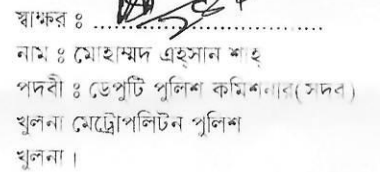 স্বাক্ষর ঃ ................................
নাম ঃ মোহাম্মদ এহ্‌সান শাহ্
পদবী ঃ ডেপুটি পুলিশ কমিশনার(সদর)
খুলনা মেট্রোপলিটন পুলিশ
খুলনা।